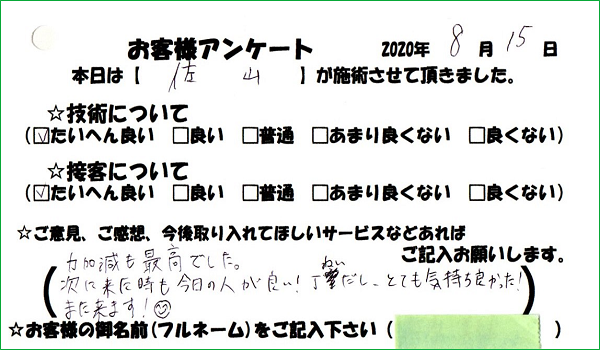 お客様アンケート 2020年 8月 15日
本日は【 佐山 】が施術させて頂きました。
☆技術について
(☑たいへん良い □良い □普通 □あまり良くない □良くない)
☆接客について
(☑たいへん良い □良い □普通 □あまり良くない □良くない)
☆ご意見、ご感想、今後取り入れてほしいサービスなどあれば
ご記入お願いします。
力加減も最高でした。
次に来た時も今日の人が良い!丁ねいだし、とても気持ち良かった!
また来ます!☺
☆お客様の御名前(フルネーム)をご記入下さい( )